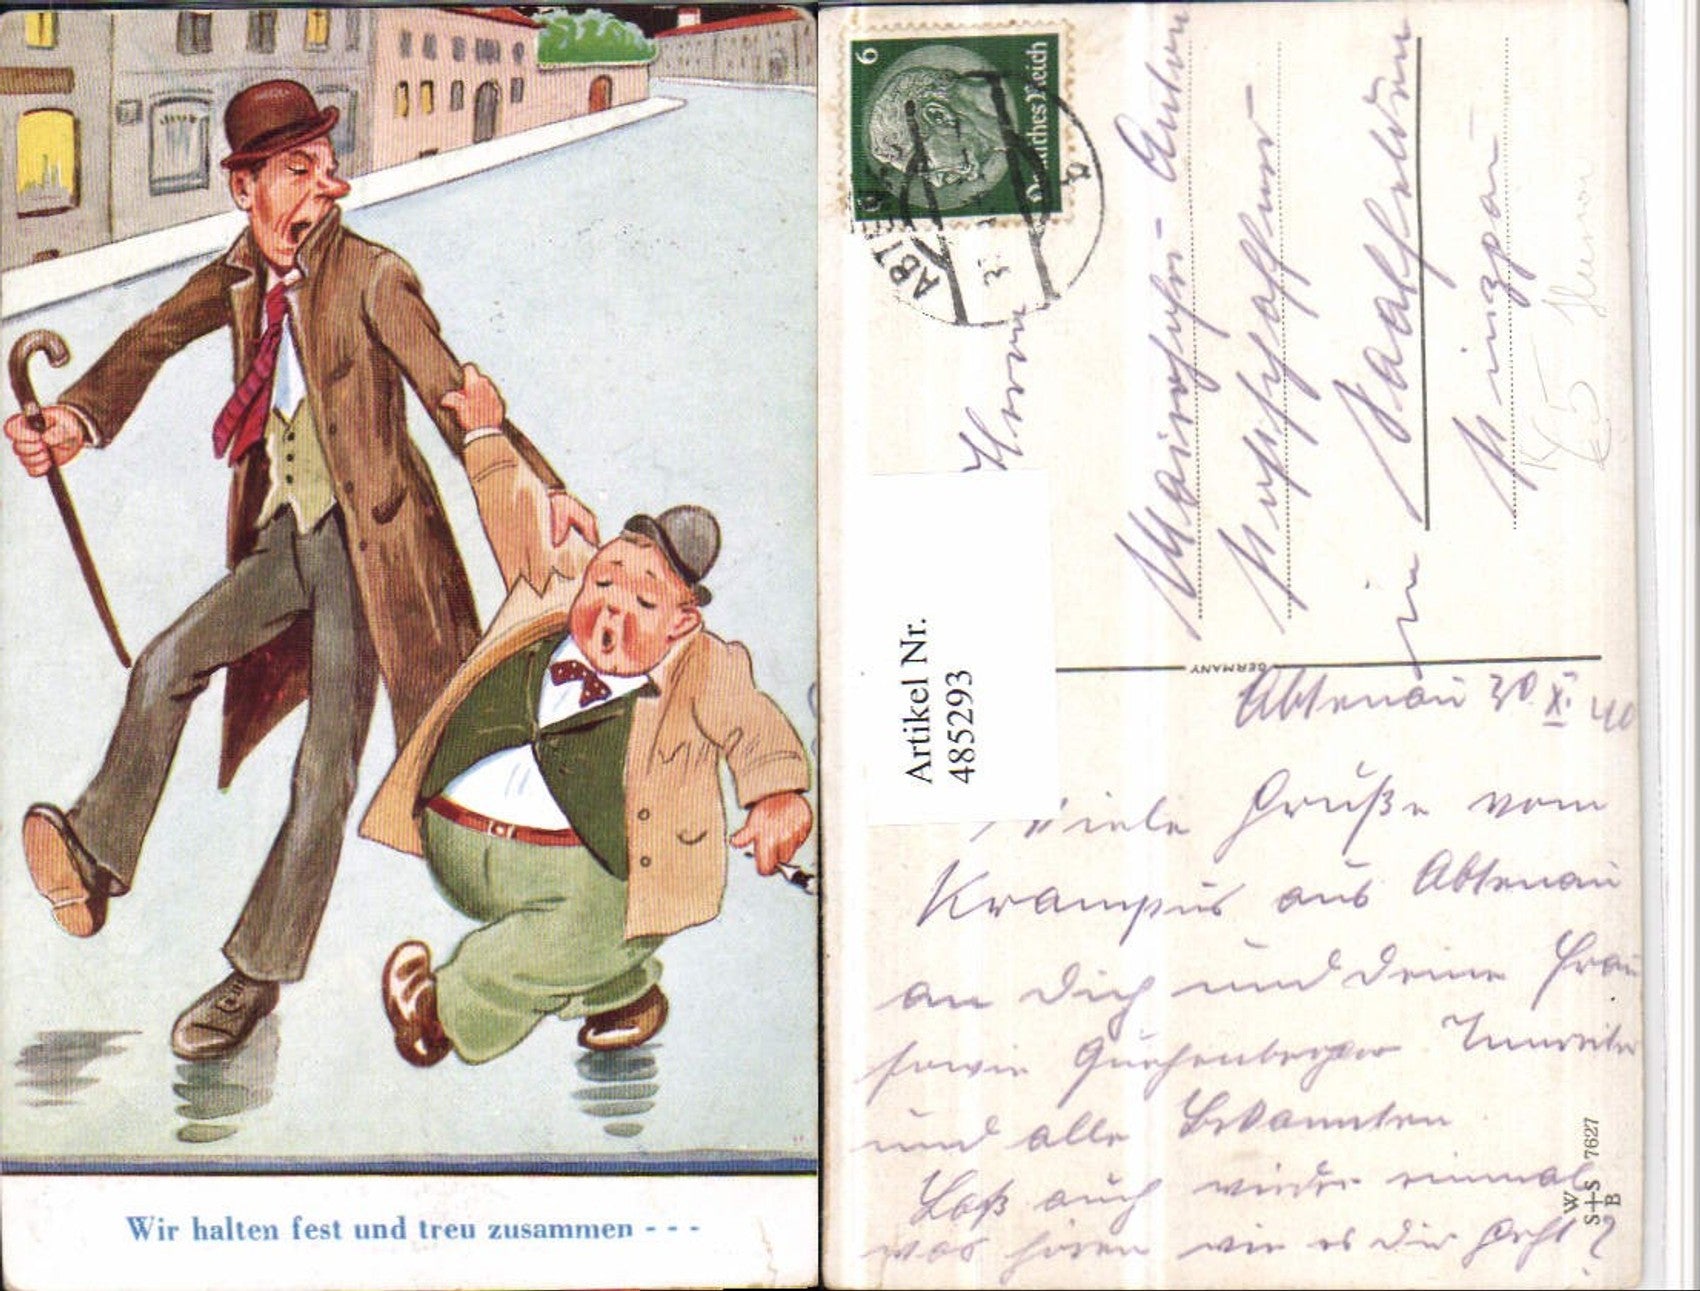 Wir halten fest und treu zusammen - - -
Deutsches Reich
6
ABTENAU
Artikel Nr.
485293
Herrn
in
Saalfelden
GERMANY
Abtenau 30. XI. 40
Viele Grüße vom
Krampus aus Abtenau
an Dich und Deine Frau
sowie
und alle Bekannten
Laß auch wieder einmal
was hören wie es Dir geht?
W
S+S 7627
B